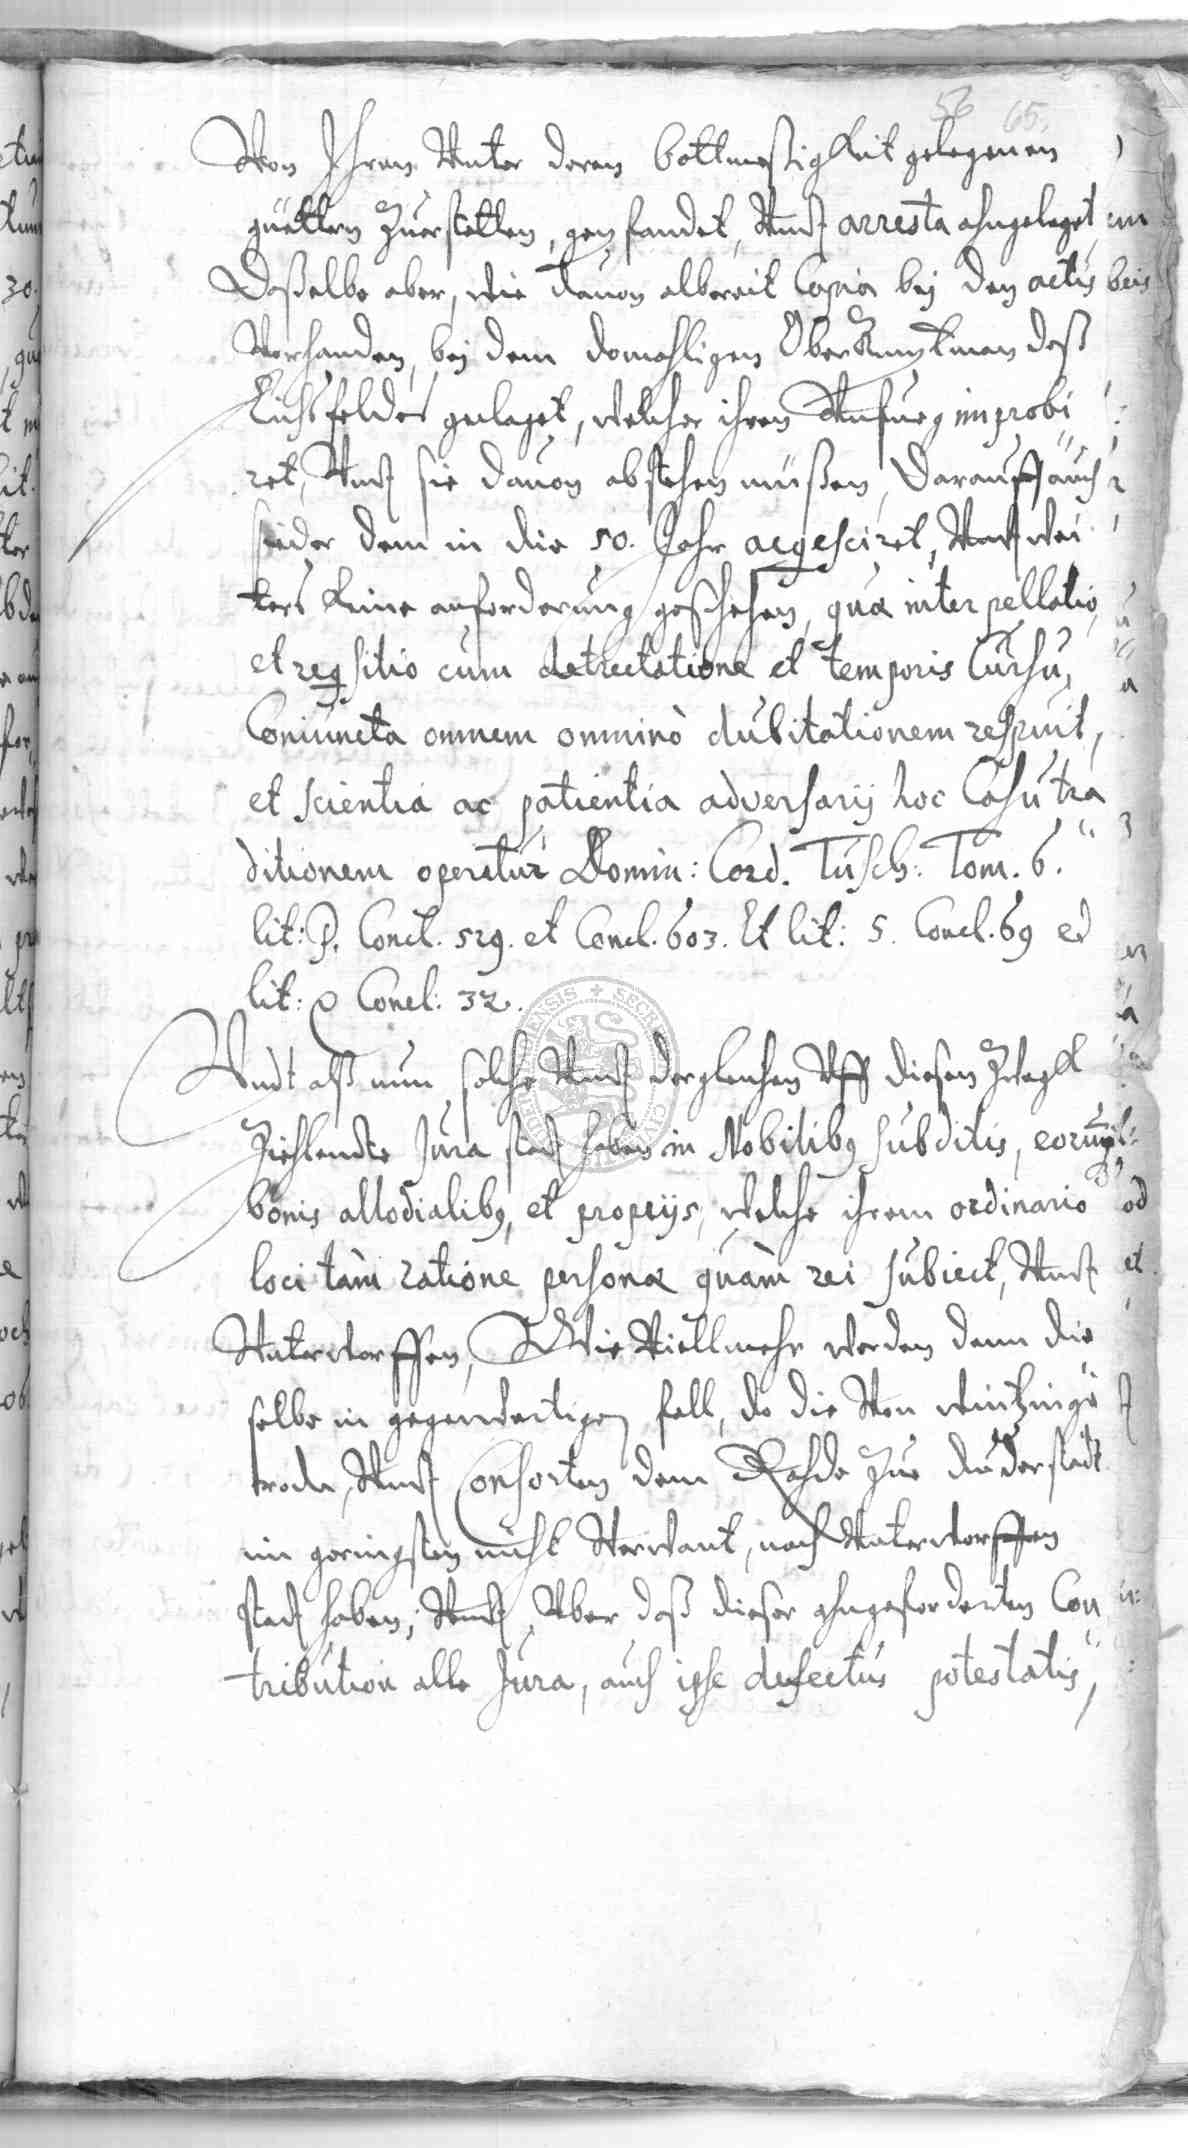 56 65.
Von Ihren Unter deren bottmeßigkeit gelegenen
güettern Zuerstatten, gepfandet, Undt arresta ahngeleget,
Daßelbe aber, wie dauon albereit Copia bej den actis
Vorhanden, bej dem domahligen OberAmptman deß
Eichsfeldes geclaget, welcher ihren Unfueg improbi
ret, Undt sie dauon abstehen müßen, Darauff auch
sieder dem in die 50. Jahr acqesciret, Undt wei
ters keine anforderung geschehen, quæ interpellatio,
et reqsitio cum detrectatione et temporis Cursu,
Coniuncta omnem omninò dubitationem respuit,
et scientia ac patientia adversarij hoc Casu tra
ditionem operetur Domin: Card. Tusch: Tom. 6.
lit: P. Concl. 529. et Concl. 603. Et lit: S. Concl. 69 et
lit: V Concl: 32.
Undt alß nun solche Undt dergleichen Uff diesen Zwegk
Ziehlende Jura stadt haben in Nobilibq subditis, eorumq;
bonis allodialibq, et proprijs, welche ihrem ordinario
loci tàm ratione personæ quàm rei subiect, Undt
Unterworffen, Wie Viellmehr werden dann die
selbe in gegenwertigen fall, do die Von wintzinge
rode, Undt Consorten dem Rahde Zue duderstadt
im geringsten nicht Verwant, noch Unterworffen
stadt haben; Undt Aber daß dieser ahngeforderten Con
tribution alle Jura, auch ipse defectus potestatis,